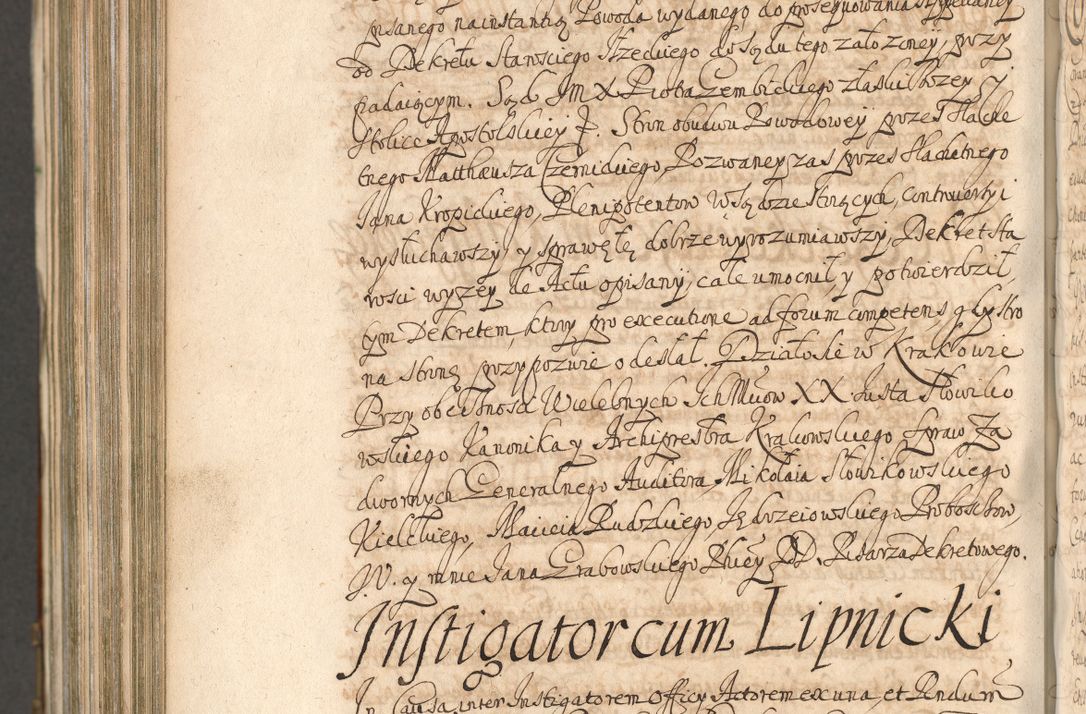 pisanego na instantią Powoda wydanego do prosequowania Appellaciey
od Dekretu Starosciego Rzeckiego do Sądu tego założoney, przy
padaiącym. Sąd JMX Piotra Gembickiego z łaski Bozey y
Stolice Apostolskiey Stron obudwu Powodowey przez Slache
tnego Matthæusza Czernickiego, Pozwaney zas przez Slachetnego
Jana Kropickiego, Plenipotentow w Sądzie stoiących, controuersyi
wysłuchawszy, y sprawę tę dobrze wyrozumiawszy, Dekret sta
rosci wyzey de Actu opisany, cale umocnił, y potwierdził,
tym Dekretem, ktory pro executione ad forum competens, gdy stro
na stronę przypozwie odesłał. Działo sie w Krakowie
Przy obecności Wielebnych Ich Mciow XX Justa Słowiko
wskiego Kanonika y Archipresbra Krakowskiego Spraw Za
dwornych Generalnego Auditora, Mikołaia Słowikowskiego
Kielckiego, Macieia Rudzkiego, Jędrzeiowskiego Proboszczow,
J.V. y mnie Jana Grabowskiego Pbliey PD. Pisarza Dekretowego.
Instigator cum Lipnicki
In Causa inter Instigatorem Officy Actorem ex una, et Rndum